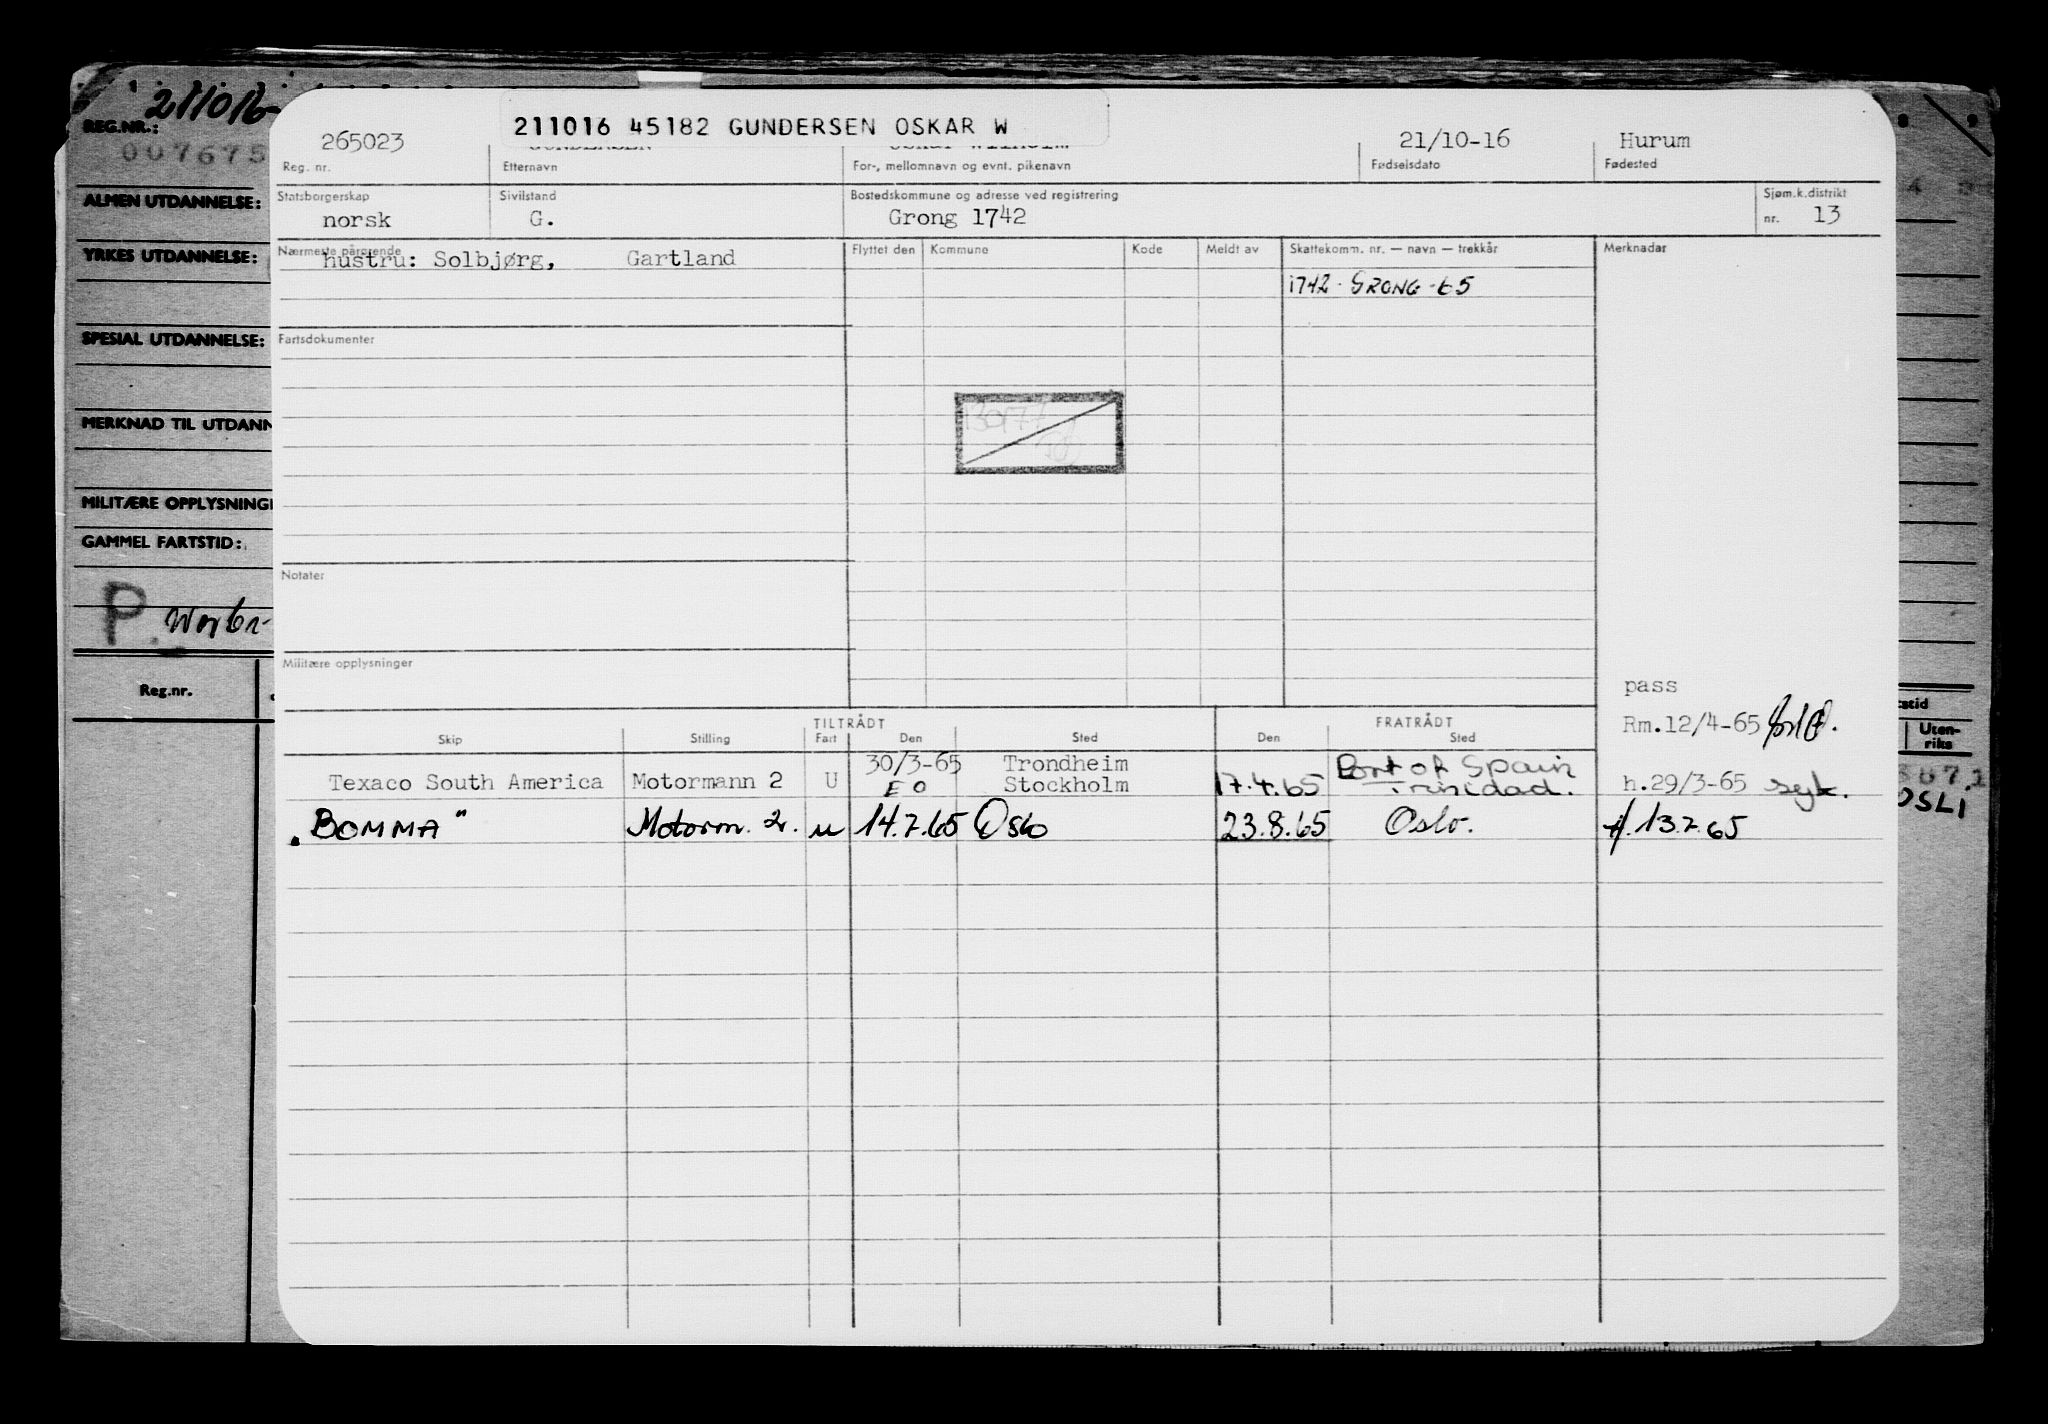 211016
REG.NR.:
007675
ALMEN UTDANNELSE:
YRKES UTDANNELSE:
SPESIAL UTDANNELSE:
MERKNAD TIL UTDANN
MILITÆRE OPPLYSNING
GAMMEL FARTSTID:
P.
Reg.nr.
211016 45182 GUNDERSEN OSKAR W
265023 GUNDERSEN Oskar Wilhelm 21/10-16 Hurum
Reg. nr. Etternavn For-, mellomnavn og evnt. pikenavn Fødselsdato Fødested
Statsborgerskap Sivilstand Bostedskommune og adresse ved registrering Sjøm.k.distrikt
norsk G. Grong 1742 nr. 13
Nærmeste pårørende Flyttet den Kommune Kode Meldt av Skattekomm. nr. — navn — trekkår Merknader
hustru: Solbjørg, Gartland
1742 - GRONG - 65
Fartsdokumenter
Notater
Militære opplysninger
pass
TILTRÅDT FRATRÅDT
Rm.12/4-65
Skip Stilling Fart Den Sted Den Sted
Texaco South America Motormann 2 U 30/3-65 Trondheim
EO Stockholm 17.4.65 Port of Spain
Trinidad. h.29/3-65 syk.
"BOMMA" Motorm. 2. u 14.7.65 Oslo 23.8.65 Oslo. 13.7.65
stid
Uten-
riks
OSLI